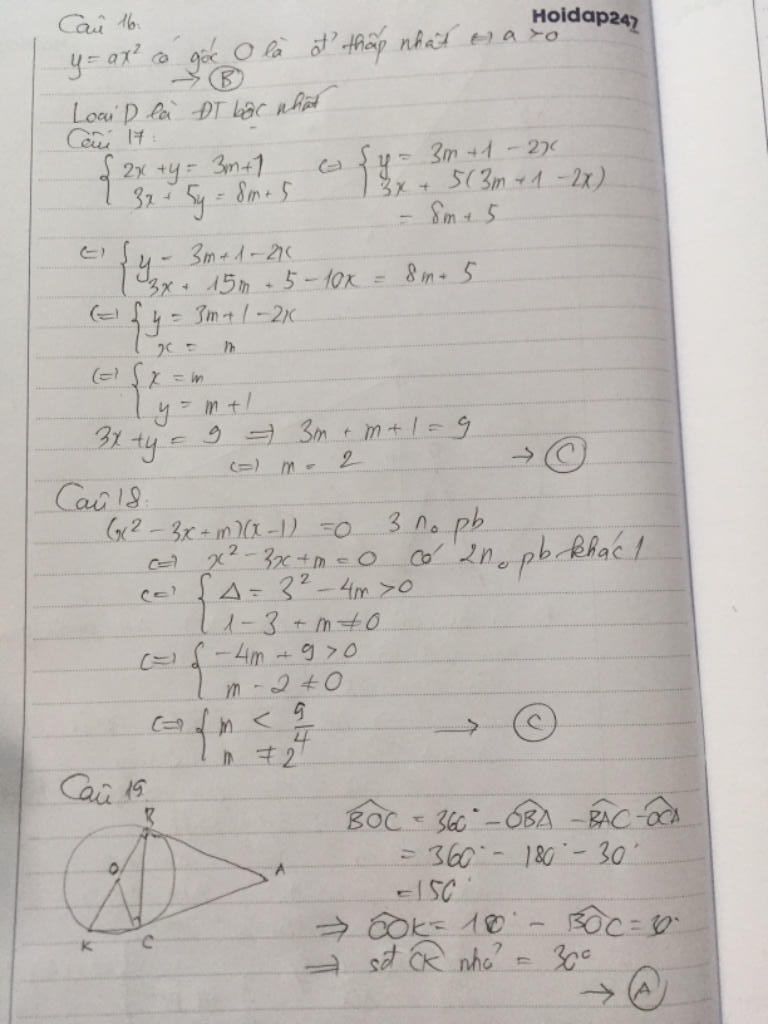 Câu 16.
Hoidap247
y = ax² có gốc O là đ' thấp nhất ⇔ a > 0
→ Ⓑ
Loại D là ĐT bậc nhất
Câu 17:
{ 2x + y = 3m+1 ⇔ { y = 3m+1 - 2x
3x + 5y = 8m+5 3x + 5(3m+1-2x)
= 8m+5
⇔ { y = 3m+1-2x
3x + 15m + 5 - 10x = 8m+5
⇔ { y = 3m+1-2x
x = m
⇔ { x = m
y = m+1
3x + y = 9 ⇒ 3m + m + 1 = 9
⇔ m = 2 → Ⓒ
Câu 18.
(x² - 3x + m)(x-1) = 0 3 n₀ pb
⇔ x² - 3x + m = 0 có 2n₀ pb khác 1
⇔ { Δ = 3² - 4m > 0
1 - 3 + m ≠ 0
⇔ { -4m + 9 > 0
m - 2 ≠ 0
⇔ { m < 9/4 → Ⓒ
m ≠ 2
Câu 19
B
O
A
K
C
BOC = 360° - OBA - BAC - OCA
= 360° - 180° - 30°
= 150°
⇒ COK = 180° - BOC = 30°
⇒ sđ CK nhỏ = 30°
→ Ⓐ